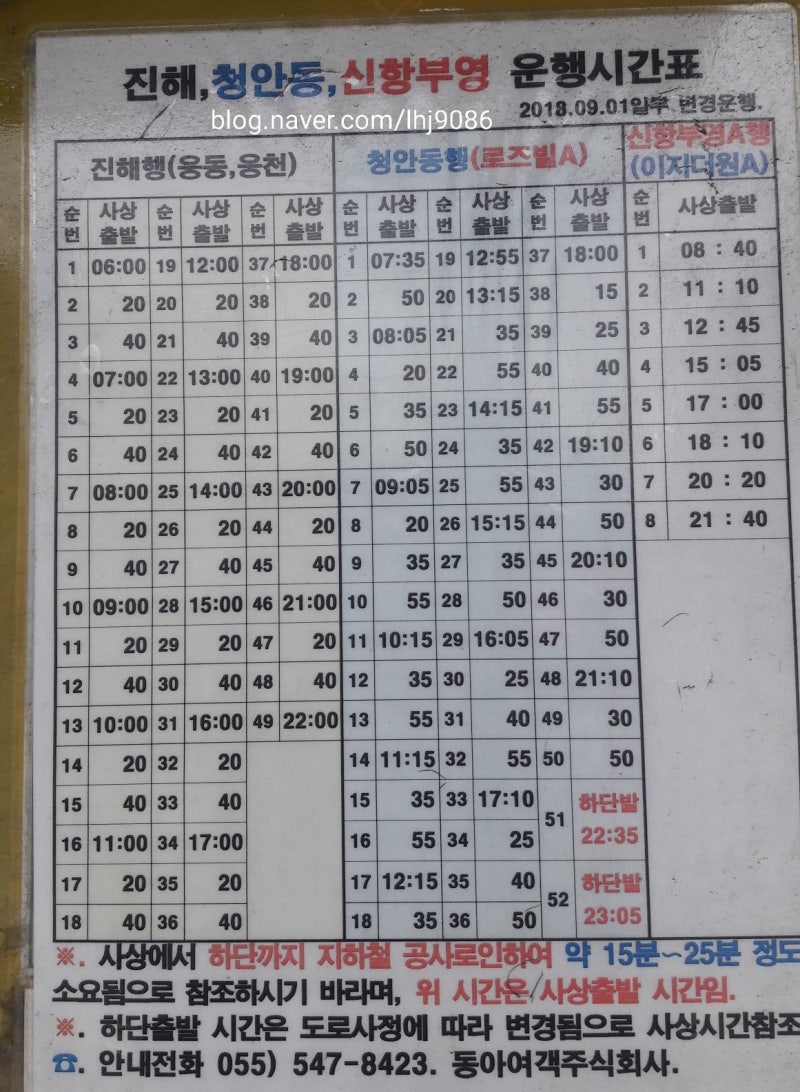 진해,청안동,신항부영 운행시간표
2018.09.01일부 변경운행.
blog.naver.com/lhj9086
진해행(웅동,웅천) 청안동행(로즈빌A) 신항부영A행 (이지더원A)
순번 사상출발 순번 사상출발 순번 사상출발 순번 사상출발 순번 사상출발 순번 사상출발 순번 사상출발
1 06:00 19 12:00 37 18:00 1 07:35 19 12:55 37 18:00 1 08 : 40
2 20 20 20 38 20 2 50 20 13:15 38 15 2 11 : 10
3 40 21 40 39 40 3 08:05 21 35 39 25 3 12 : 45
4 07:00 22 13:00 40 19:00 4 20 22 55 40 40 4 15 : 05
5 20 23 20 41 20 5 35 23 14:15 41 55 5 17 : 00
6 40 24 40 42 40 6 50 24 35 42 19:10 6 18 : 10
7 08:00 25 14:00 43 20:00 7 09:05 25 55 43 30 7 20 : 20
8 20 26 20 44 20 8 20 26 15:15 44 50 8 21 : 40
9 40 27 40 45 40 9 35 27 35 45 20:10
10 09:00 28 15:00 46 21:00 10 55 28 50 46 30
11 20 29 20 47 20 11 10:15 29 16:05 47 50
12 40 30 40 48 40 12 35 30 25 48 21:10
13 10:00 31 16:00 49 22:00 13 55 31 40 49 30
14 20 32 20 14 11:15 32 55 50 50
15 40 33 40 15 35 33 17:10 51 하단발 22:35
16 11:00 34 17:00 16 55 34 25
17 20 35 20 17 12:15 35 40 52 하단발 23:05
18 40 36 40 18 35 36 50
※. 사상에서 하단까지 지하철 공사로인하여 약 15분~25분 정도
소요됨으로 참조하시기 바라며, 위 시간은 사상출발 시간임.
※. 하단출발 시간은 도로사정에 따라 변경됨으로 사상시간참조
☎. 안내전화 055) 547-8423. 동아여객주식회사.